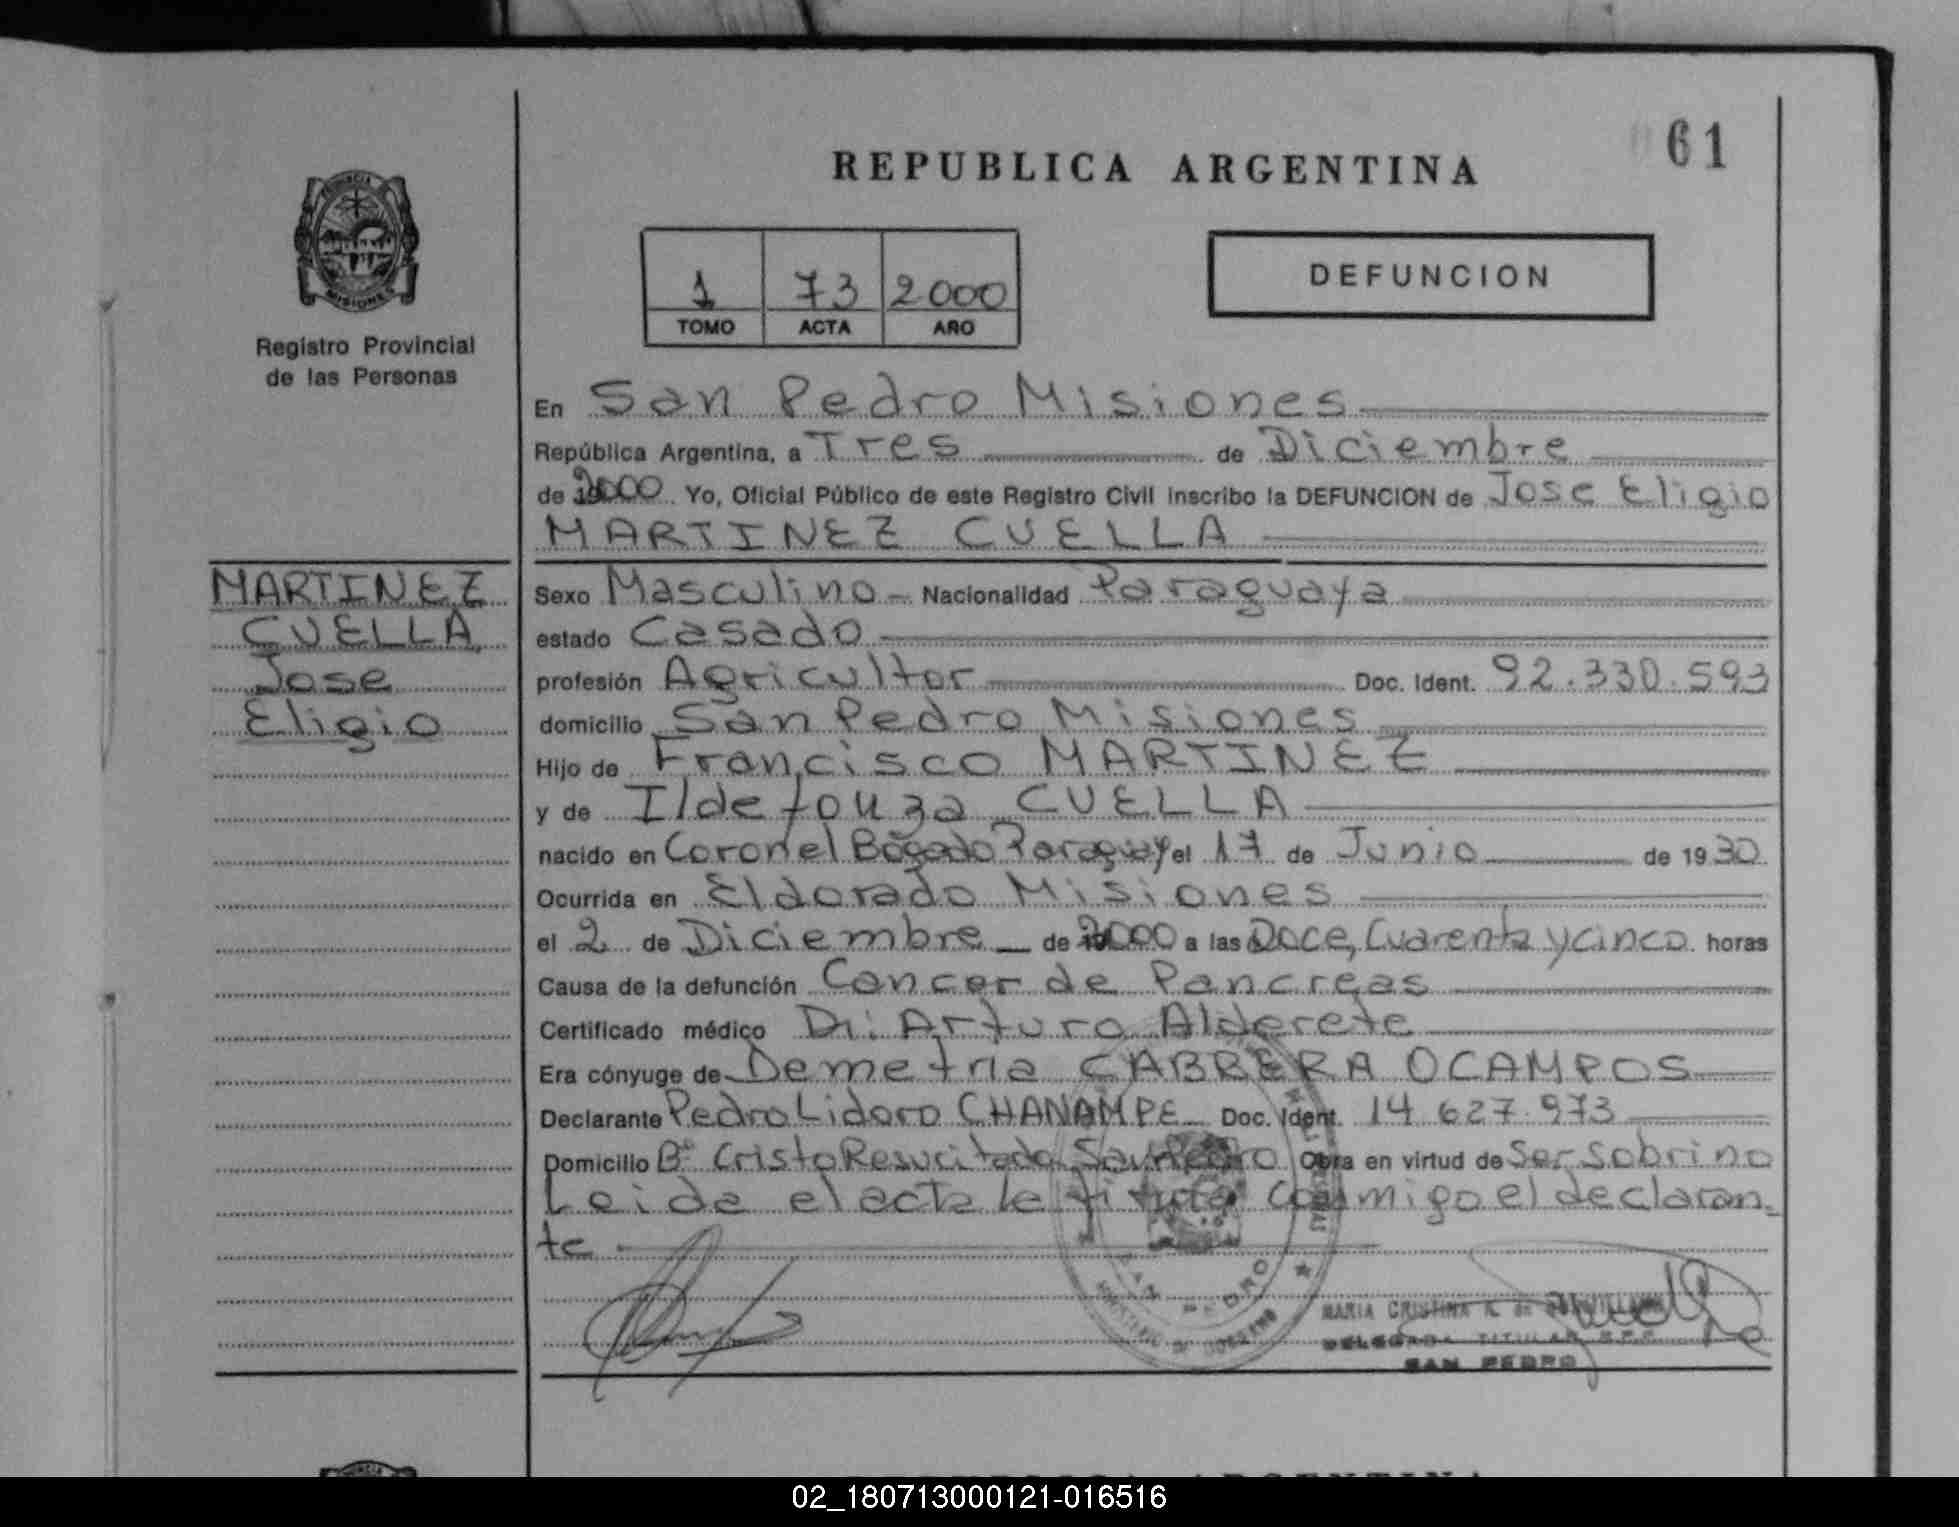 61
REPUBLICA ARGENTINA
PROVINCIA
MISIONES
Registro Provincial
de las Personas
1 73 2000
TOMO ACTA AÑO
DEFUNCION
En San Pedro Misiones
República Argentina, a Tres de Diciembre
de 2000 Yo, Oficial Público de este Registro Civil inscribo la DEFUNCION de Jose Eligio
MARTINEZ CUELLA
MARTINEZ
CUELLA
Jose
Eligio
Sexo Masculino - Nacionalidad Paraguaya
estado Casado
profesión Agricultor Doc. Ident. 92.330.593
domicilio San Pedro Misiones
Hijo de Francisco MARTINEZ
y de Ildefonza CUELLA
nacido en Coronel Bogado Paraguay el 17 de Junio de 1930
Ocurrida en Eldorado Misiones
el 2 de Diciembre de 2000 a las Doce, Cuarenta y cinco horas
Causa de la defunción Cancer de Pancreas
Certificado médico Dr. Arturo Alderete
Era cónyuge de Demetria CABRERA OCAMPOS
Declarante Pedro Lidoro CHANAMPE Doc. Ident. 14.627.973
Domicilio Bº Cristo Resucitado San Pedro Obra en virtud de Ser Sobrino
Leida el acta la firma conmigo el declaran-
te
SAN PEDRO
MARIA CRISTINA R. de
DELEGADA TITULAR R.P.P.
SAN PEDRO
REPUBLICA ARGENTINA
02_180713000121-016516